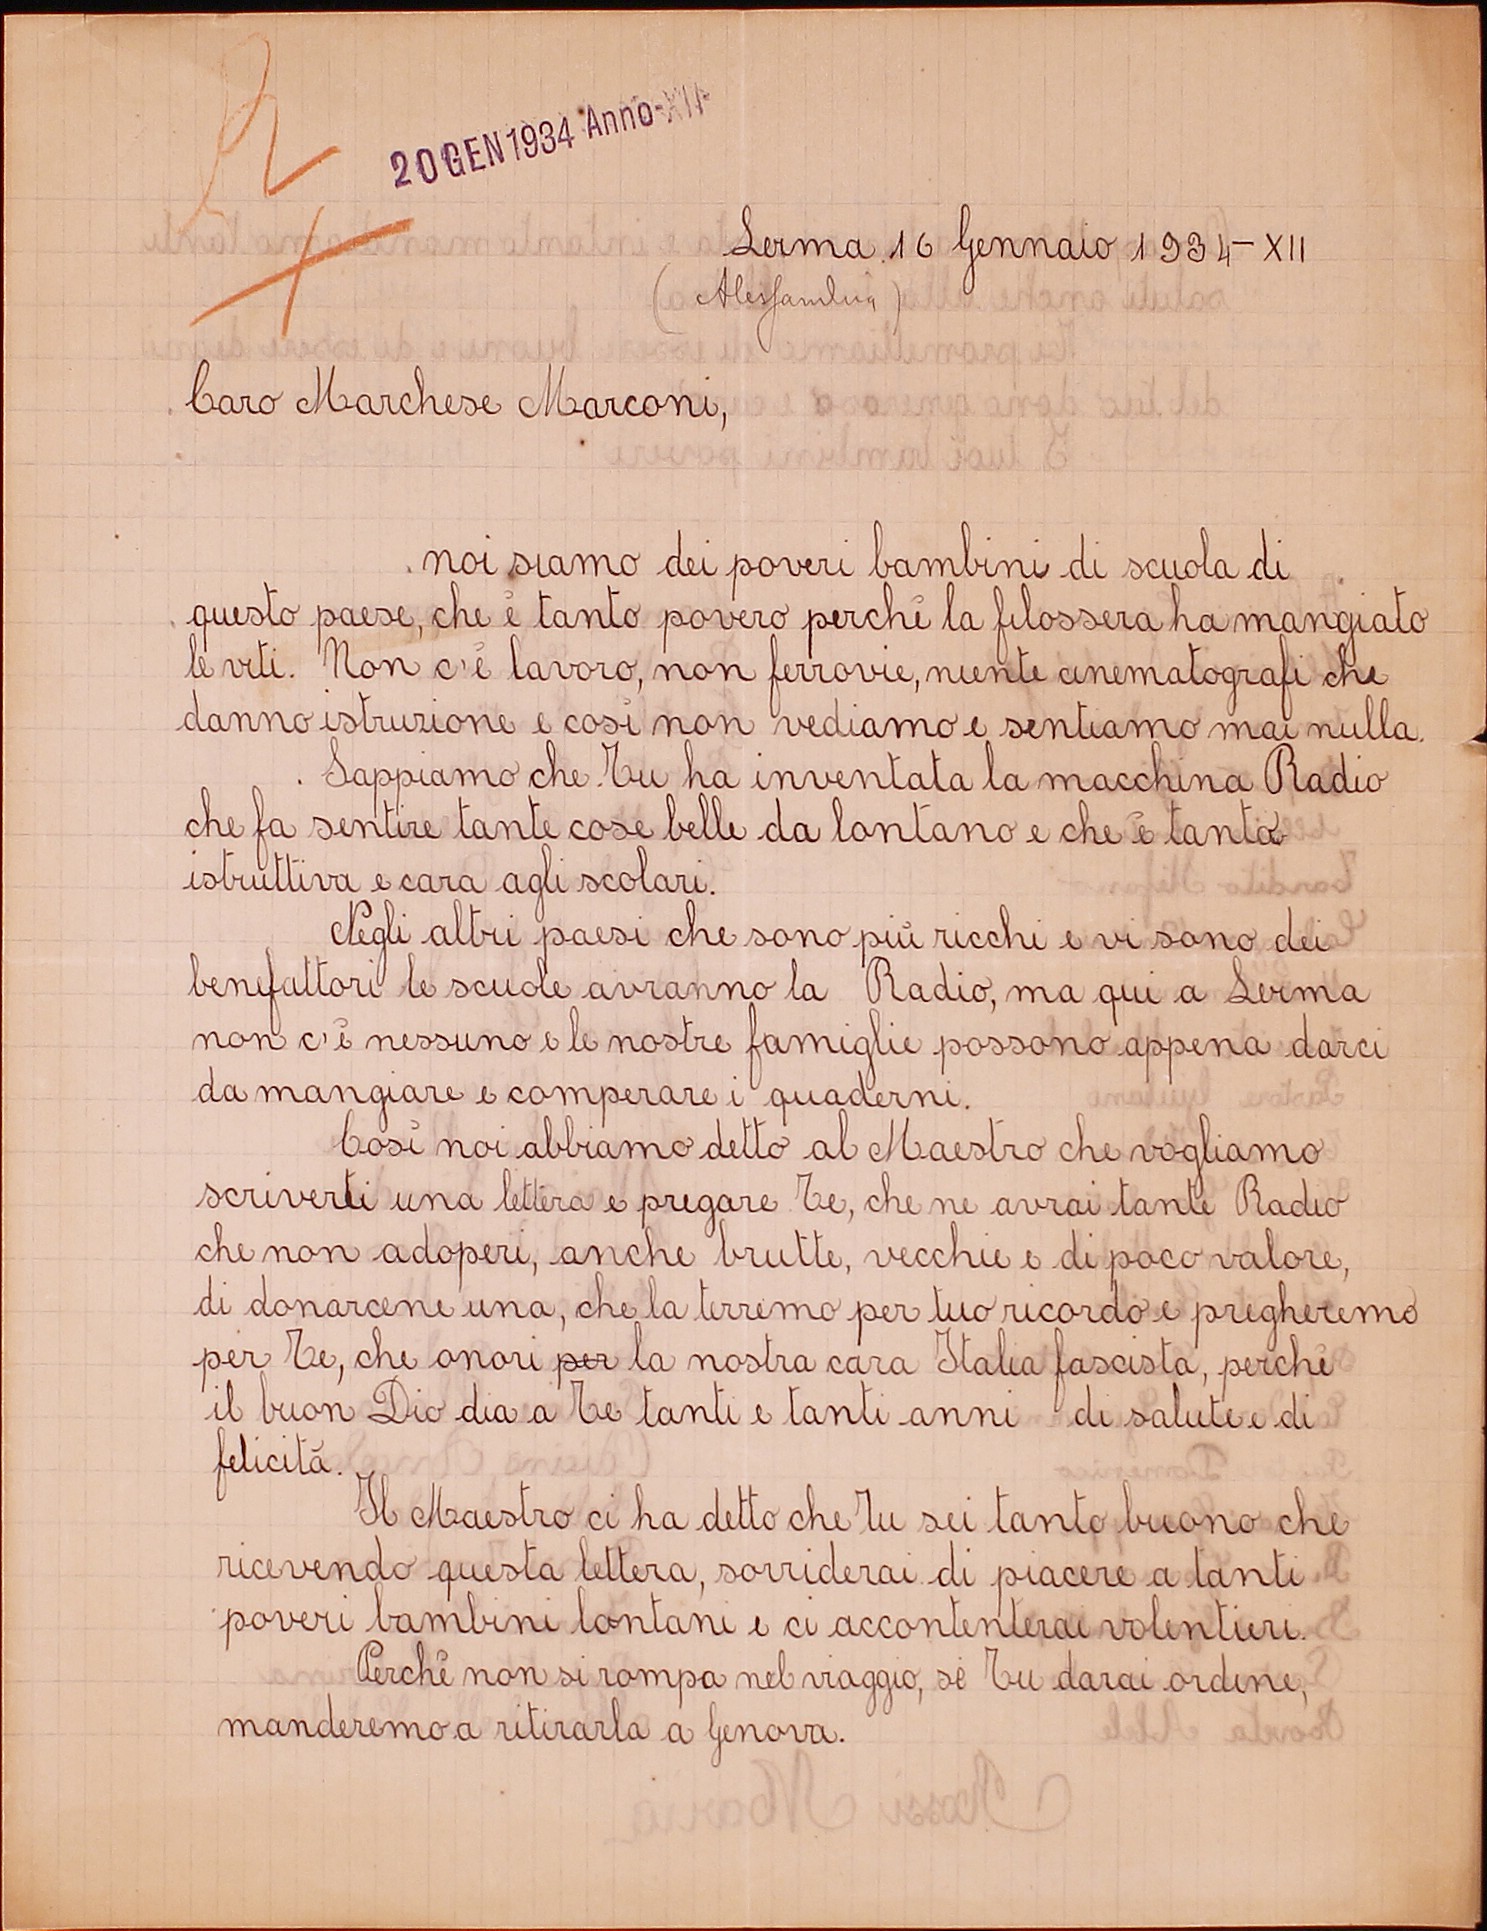 20 GEN 1934 Anno-XII
Lerma 16 Gennaio 1934-XII
(Alessandria)
Caro Marchese Marconi,
noi siamo dei poveri bambini di scuola di
questo paese, che è tanto povero perchè la filossera ha mangiato
le viti. Non c'è lavoro, non ferrovie, niente cinematografi che
danno istruzione e così non vediamo e sentiamo mai nulla.
Sappiamo che Tu ha inventata la macchina Radio
che fa sentire tante cose belle da lontano e che è tanto
istruttiva e cara agli scolari.
Negli altri paesi che sono più ricchi e vi sono dei
benefattori le scuole avranno la Radio, ma qui a Lerma
non c'è nessuno e le nostre famiglie possono appena darci
da mangiare e comperare i quaderni.
Così noi abbiamo detto al Maestro che vogliamo
scriverti una lettera e pregare Te, che ne avrai tante Radio
che non adoperi, anche brutte, vecchie e di poco valore,
di donarcene una, che la terremo per tuo ricordo e pregheremo
per Te, che onori per la nostra cara Italia fascista, perchè
il buon Dio dia a Te tanti e tanti anni di salute e di
felicità.
Il Maestro ci ha detto che Tu sei tanto buono che
ricevendo questa lettera, sorriderai di piacere a tanti
poveri bambini lontani e ci accontenterai volentieri.
Perchè non si rompa nel viaggio, se Tu darai ordine,
manderemo a ritirarla a Genova.